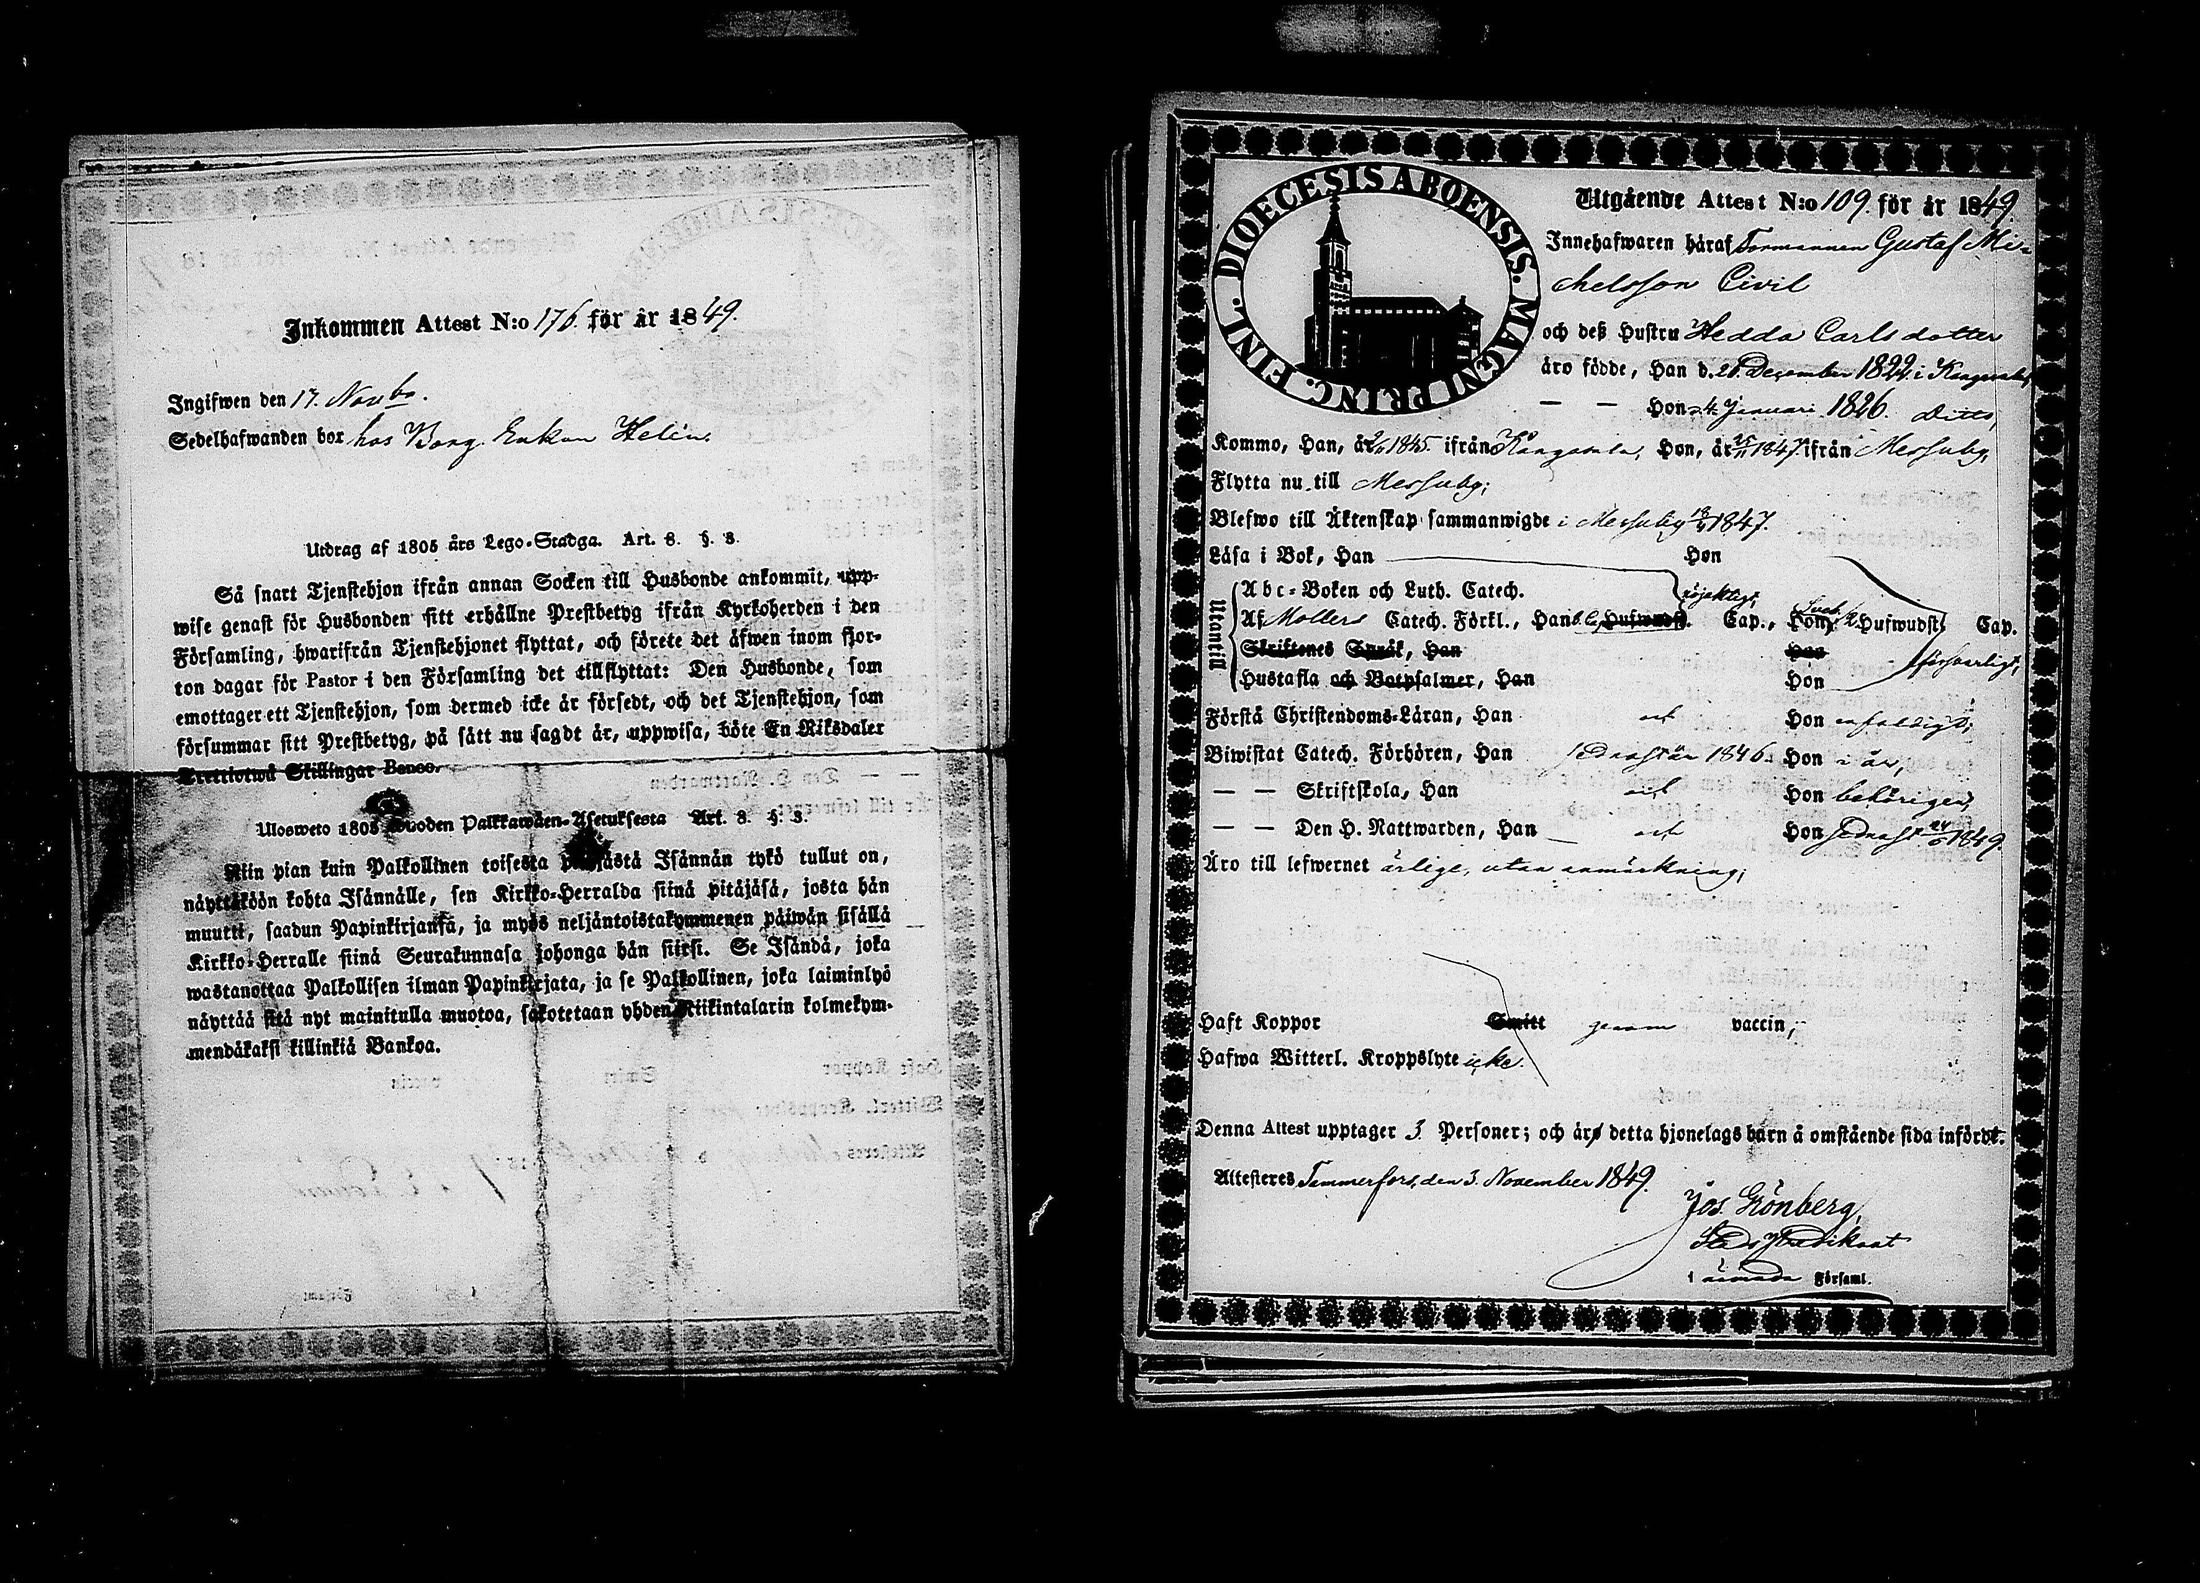 Inkommen Attest N:o 176. för år 1849.
Ingifwen den 17. Novbr.
Sedelhafwanden bor hos Borg. Enkan Helin.
Utdrag af 1805 års Lego-Stadga. Art. 8. §. 3.
Så snart Tjenstehjon ifrån annan Socken till Husbonde ankommit, upp-
wise genast för Husbonden sitt erhållne Prestbetyg ifrån Kyrkoherden i den
Församling, hwarifrån Tjenstehjonet flyttat, och förete det äfwen inom fjor-
ton dagar för Pastor i den Församling det tillflyttat: Den Husbonde, som
emottager ett Tjenstehjon, som dermed icke är försedt, och det Tjenstehjon, som
försummar sitt Prestbetyg, på sätt nu sagdt är, uppwisa, böte En Riksdaler
Trettiotwå Skillingar Banco.
Ulosweto 1805 wuoden Palkkawäen-Asetuksesta Art. 8. §. 3.
Niin pian kuin Palkollinen toisesta pitäjästä Isännän tykö tullut on,
näyttäköön kohta Isännälle, sen Kirkko-Herralda siinä pitäjäsä, josta hän
muutti, saadun Papinkirjansa, ja myös neljäntoistakymmenen päiwän sisällä
Kirkko-Herralle siinä Seurakunnasa johonga hän siirsi. Se Isändä, joka
wastanottaa Palkollisen ilman Papinkirjata, ja se Palkollinen, joka laiminlyö
näyttää sitä nyt mainitulla muotoa, sakotetaan yhden Riikintalarin kolmekym-
mendäkaksi killinkiä Bankoa.
DIOECESIS ABOENSIS. MAGNI PRINC. FINL.
Utgående Attest N:o 109. för år 1849.
Innehafwaren häraf Formannen Gustaf Mi-
chelsson Civil
och deß Hustru Hedda Carlsdotter
äro födde, Han d. 21. December 1822. i Kangasala,
— — Hon 4. Januari 1826. Ditto,
Kommo, Han, år 2/11 1845. ifrån Kångasala, Hon, år 25/11 1847. ifrån Messuby,
Flytta nu till Messuby;
Blefwo till Äktenskap sammanwigde i Messuby 1847.
Läsa i Bok, Han Hon
Abc-Boken och Luth. Catech. nöjaktigt
Utantill Af Mollers Catech. Förkl., Han Hufwudst. Cap., Hon Hufwudst. Cap.
Skriftenes Språk, Han Hon försvarligt,
Hustafla och Botpsalmer, Han Hon
Förstå Christendoms-Läran, Han Hon enfaldigt;
Biwistat Catech. Förhören, Han sednast år 1846. Hon i år,
— — Skriftskola, Han Hon behörigen,
— — Den H. Nattwarden, Han Hon sednast 1849.
Äro till lefwernet ärlige, utan anmärkning;
Haft Koppor Smitt genom vaccin,
Hafwa Witterl. Kroppslyte icke.
Denna Attest upptager 3 Personer; och äro detta hjonelags barn å omstående sida införde.
Attesteres Tammerfors, den 3. November 1849.
Jos. Grönberg,
i Församl.